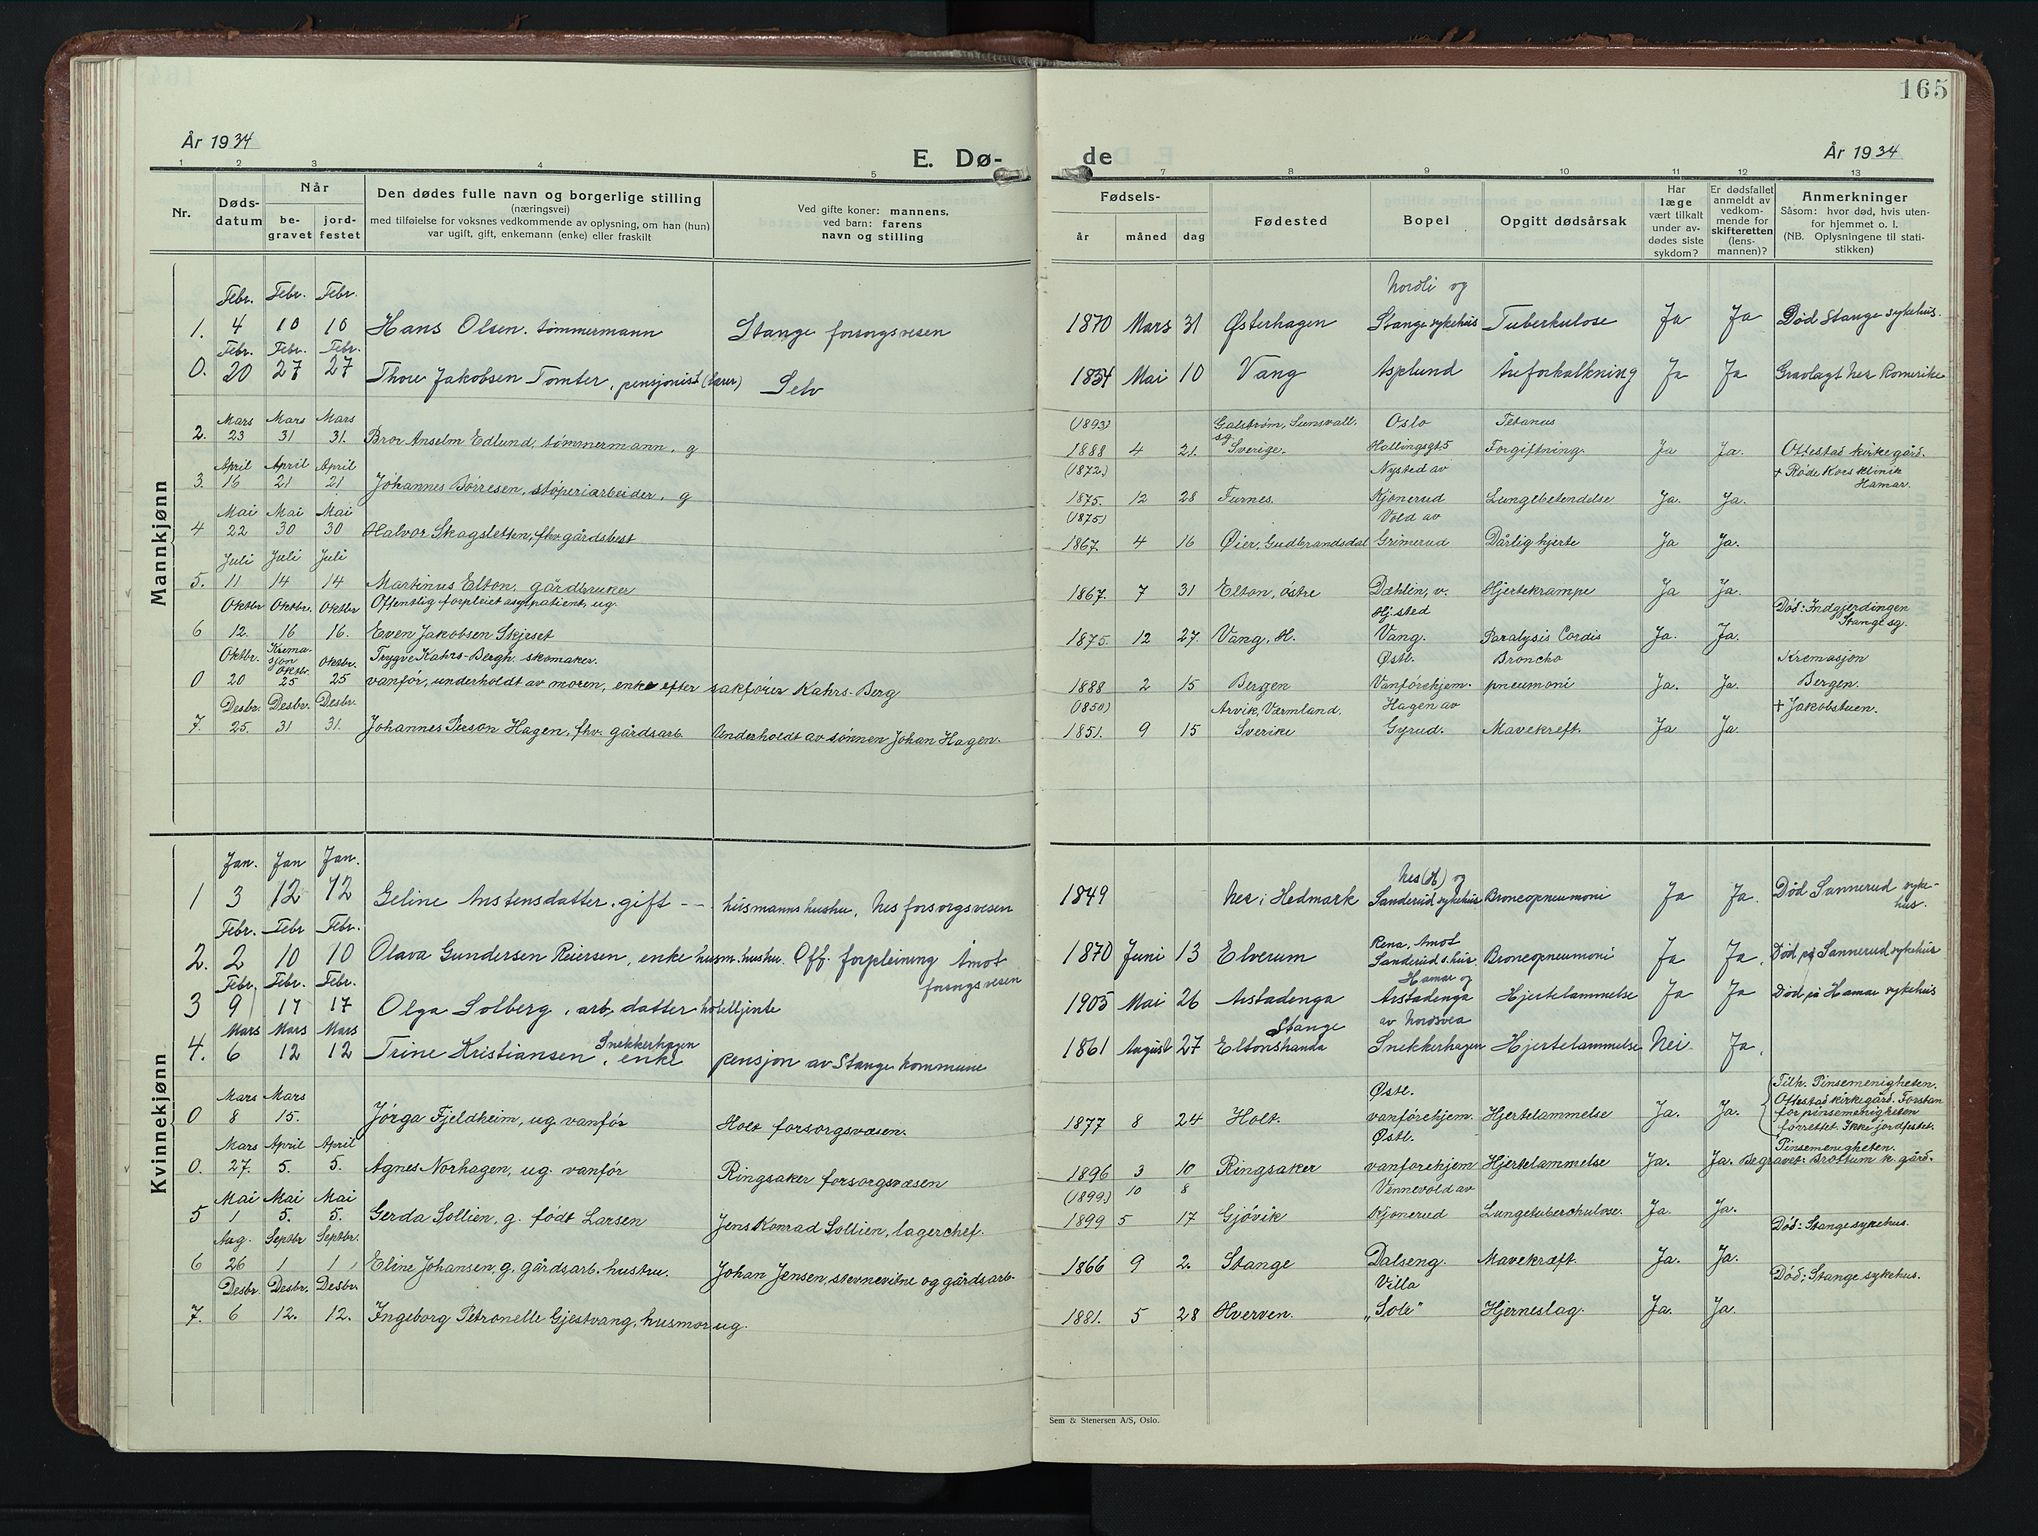 165
År 1934
E. Dø-
de
År 1934
1 2 3 4 5
7 8 9 10 11 12 13
Nr.
Dødsdatum
Når
begravet
jordfestet
Den dødes fulle navn og borgerlige stilling
(næringsvei)
med tilføielse for voksnes vedkommende av oplysning, om han (hun)
var ugift, gift, enkemann (enke) eller fraskilt
Ved gifte koner: mannens,
ved barn: farens
navn og stilling
Fødsels-
år måned dag
Fødested
Bopel
Opgitt dødsårsak
Har læge vært tilkalt under avdødes siste sykdom?
Er dødsfallet anmeldt av vedkommende for skifteretten (lensmannen)?
Anmerkninger
Såsom: hvor død, hvis utenfor hjemmet o. l.
(NB. Oplysningene til statistikken)
Mannkjønn
Febr. Febr. Febr. Nordli og
1. 4 10 10 Hans Olsen. tømmermann Stange forsorgsvesen 1870 Mars 31 Østerhagen Stange sykehus Tuberkulose Ja Ja Død Stange sykehus.
Febr. Febr. Febr.
0. 20 27 27 Thore Jakobsen Tomter, pensjonist (lærer) Selv 1834 Mai 10 Vang Asplund Åreforkalkning Ja Ja Gravlagt Nes Romerike
Mars Mars Mars (1893) Galstrøm, Sunsvall. Oslo Tetanus
2. 23 31 31. Bror Anselm Edlund, tømmermann, g 1888 4 21. sg. Sverige. Hallingsgt 5 Forgiftning. Ja Ja. Ottestad kirkegård.
April April April (1872.) Nysted av + Røde Kors klinik
3. 16 21 21 Johannes Børresen, støperiarbeider, g 1875. 12 28 Furnes. Kjonerud Lungebetendelse Ja. Ja. Hamar.
Mai Mai Mai (1875) Vold av
4 22 30 30 Halvor Skagsletten, fhv. gårdsbest 1867. 4 16 Øier, Gudbrandsdal Grimerud Dårlig hjerte Ja Ja.
Juli Juli Juli
5. 11 14 14 Martinus Elton, gårdbruker 1867. 7 31 Elton, østre Dæhlin, v. Hjertekrampe Ja Ja
Oktbr Oktbr. Oktbr Offentlig forpleiet asylpatient, ug. Hj. sted Død: Indgjerdingen
6 12. 16 16. Even Jakobsen Skjerset 1875. 12 27. Vang, H. Vang. Paralysis Cordis Ja. Ja. Stange sg.
Oktbr. Kremasjon Oktbr. Oktbr. Trygve Kahrs-Bergh. skomaker. Østl. Broncho Kremasjon
0 20 25 25 vanfør, underholdt av moren, enke efter sakfører Kahrs-Berg 1888 2 15 Bergen Vanførehjem. pneumoni Ja. Ja. Bergen.
Desbr. Desbr. Desbr. (1850) Arvik, Værmland. Hagen av + Jakobstuen.
7. 25. 31 31. Johannes Person Hagen, fhv. gårdsarb. Underholdt av sønnen Johan Hagen. 1851. 9 15 Sverike Gyrud. Mavekreft. Ja Ja.
Kvinnekjønn
Jan. Jan Jan. Nes (H) og
1 3 12 12 Geline Anstensdatter, gift -- husmanns hustru, Nes forsorgsvesen 1849 Nes i Hedmark Sanderud sykehus Broncopneumoni Ja Ja. Død Sannerud sykehus.
Febr. Febr Febr. Rena, Åmot
2. 2 10 10 Olava Gundersen Reiersen, enke husm. hustru. Off. forpleining Åmot forsorgsvesen 1870 Juni 13 Elverum Sanderud s.hus Broncopneumoni Ja Ja. Død på Sannerud sykehus
Febr. Febr. Febr. Hamar og
3 9 17 17 Olga Solberg, arb. datter hotelljente 1905 Mai 26 Arstadenga Arstadenga Hjertelammelse Ja Ja Død på Hamar sykehus
Mars Mars Mars Snekkerhagen Stange av Nordsvea
4. 6 12 12 Trine Kristiansen, enke pensjon av Stange kommune 1861 August 27 Eltonstranda Snekkerhagen Hjertelammelse Nei. Ja.
Mars Mars Østl. Tilh. Pinsemenigheten.
0 8 15. Jørga Fjeldheim, ug. vanfør Holt forsorgsvæsen. 1877 8 24 Holt. vanførehjem. Hjertelammelse Ja. Ja. Ottestad kirkegård. Forstan for pinsemenigheten forrettet. Ikke jordfestet.
Mars April April Østl. Pinsemenigheten.
0. 27. 5. 5. Agnes Norhagen, ug. vanfør Ringsaker forsorgsvæsen 1896 3 10 Ringsaker vanførehjem Hjertelammelse Ja. Ja. Begravet: Brøttum k. gård.
Mai Mai Mai (1899.) 10 8 Vennevold av
5 1 5. 5. Gerda Sollien, g. født Larsen Jens Konrad Sollien, lagerchef. 1899 5 17 Gjøvik Kjonerud Lungetuberchulose. Ja. Ja.
Aug. Septbr Septbr. Død: Stange sykehus.
6 26 1 1 Eline Johansen, g. gårdsarb. hustru. Johan Jensen, stevnevitne og gårdsarb. 1866 9 2. Stange Dalseng. Mavekræft. Ja. Ja.
Desbr. Desbr. Desbr Villa Død: Stange sykehus.
7. 6 12. 12. Ingeborg Petronelle Gjestvang, husmor ug. 1881. 5 28 Hverven. "Sole" Hjerneslag. Ja. Ja.
Sem & Stenersen A/S, Oslo.